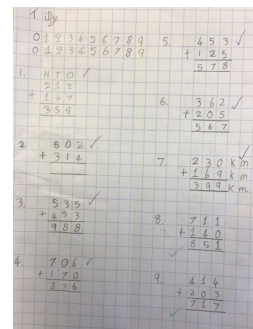 Tilly
0 1 2 3 4 5 6 7 8 9
0 1 2 3 4 5 6 7 8 9
1.
H T O
2 1 2
+ 1 4 7
3 5 9
2
8 0 2
+ 3 1 4
3.
5 3 5
+ 4 5 3
9 8 8
4.
7 0 6
+ 1 7 0
3 7 6
5.
4 5 3
+ 1 2 5
5 7 8
6.
3 6 2
+ 2 0 5
5 6 7
7.
2 3 0 k m
+ 1 6 9 k m
3 9 9 k m
8.
7 1 1
+ 1 4 0
8 5 1
9.
4 1 4
+ 2 0 3
7 1 7